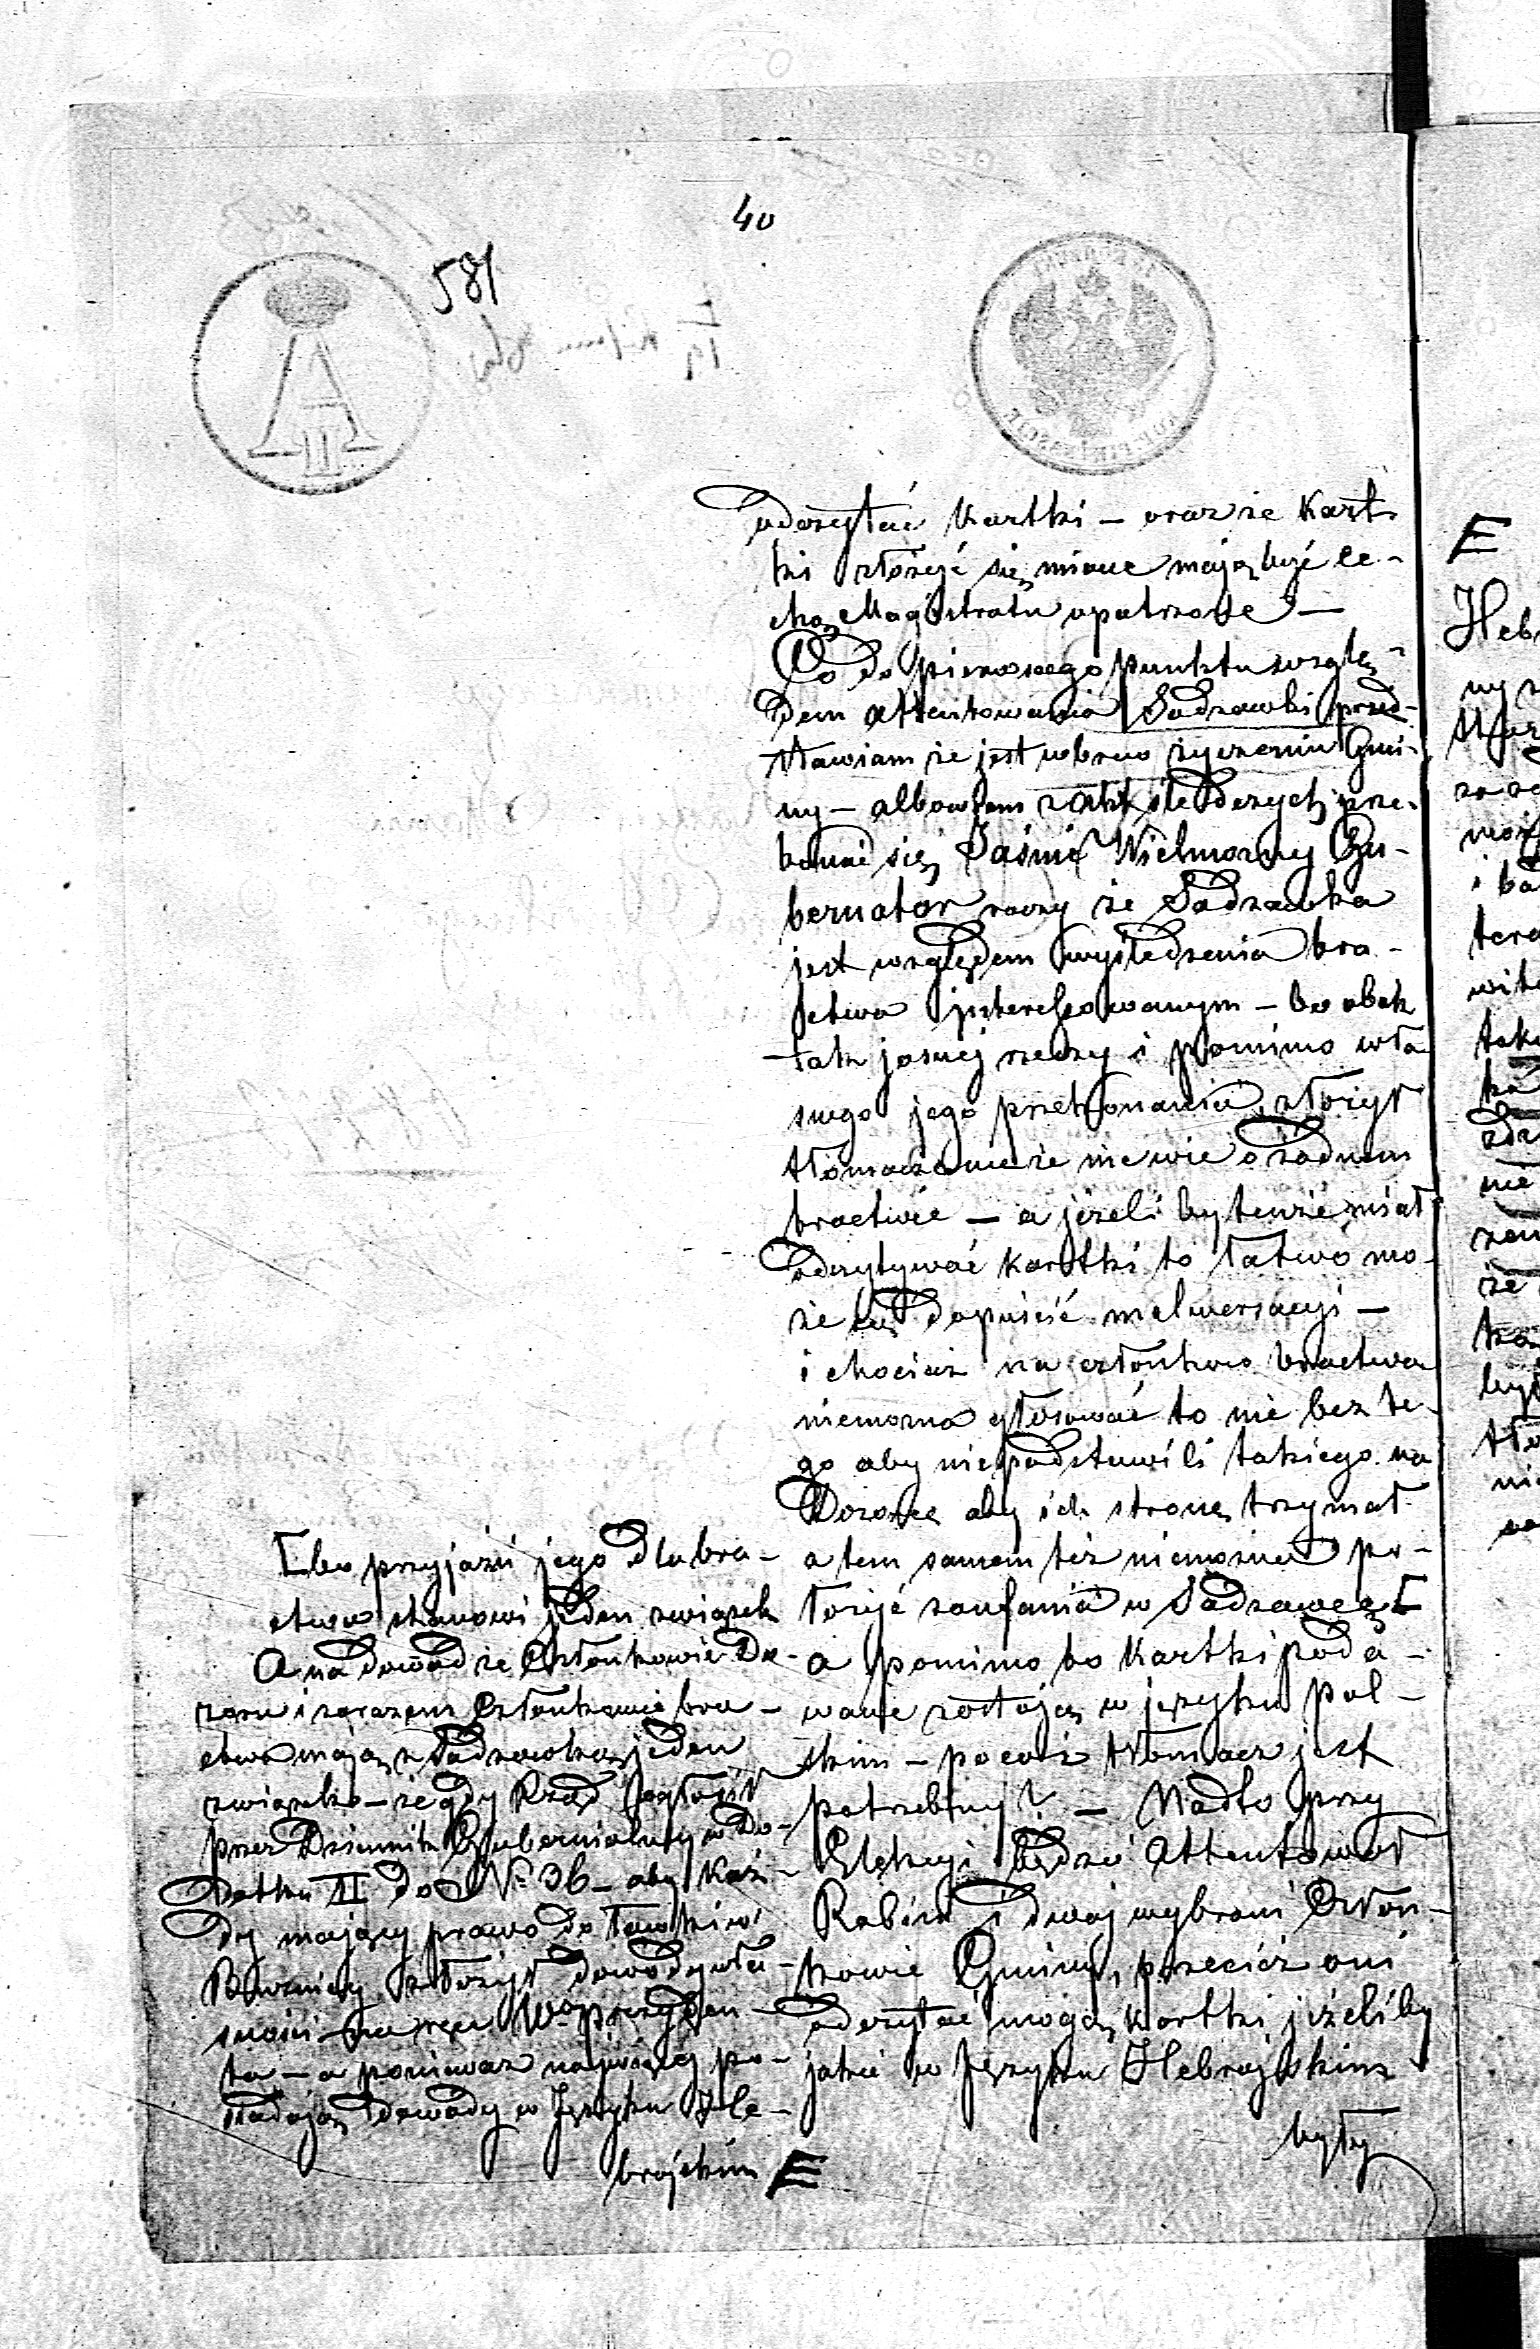 40
581
A
II
odczytać Kartki – oraz że Kart-
ki złożyć się miane mają być ce-
chą Magistratu opatrzone –
Co do pierwszego punktu wzglę-
dem attentowania Sadzawki przed-
stawiam że jest wbrew życzeniu Gmi-
ny – albowiem z akt śledczych prze-
konać się Jaśnie Wielmożny Gu-
bernator raczy że Sadzawka
jest względem wyśledzenia bra-
ctwa interessowanym – bo obok
tak jasnej rzeczy i pomimo wła
snego jego przekonania, złożył
tłomaczenie że nie wie o żadnem
bractwie – a jeżeli by tenże miał
odczytywać Kartki to łatwo mo-
że się dopuścić malwersacyi –
i chociaż na członków bractwa
niemożna głosować to nie bez te-
go aby niepodstawili takiego na
Dozorcę aby ich stronę trzymał
a tem samem też niemożna po-
łożyć zaufania w Sadzawce [
a pomimo to Kartki poda-
wane zostają w języku pol-
skim – pocóż tłomacz jest
potrzebny? – Nadto przy
Elekcyi będzie Attentował
Rabin i dwaj wybrani Człon-
kowie Gminy, przecież oni
odczytać mogą Kartki jeżeliby
jakie w Języku Hebrajskim
były
[ bo przyjaźń jego dla bra-
ctwa stanowi jeden związek
A na dowód że Członkowie Do-
zoru i zarazem Członkowie bra-
ctwa mają z Sadzawką jeden
związek – że gdy Rząd ogłosił
przez Dziennik Gubernialny w Do-
datku II do Nº 36 – aby Każ-
dy mający prawo do ławki w
Bóżnicy złożył dowody wła-
sności na ręce Wº prezyden-
ta – a ponieważ najwięcej po-
siadają dowody w Języku He-
brajskim E
E